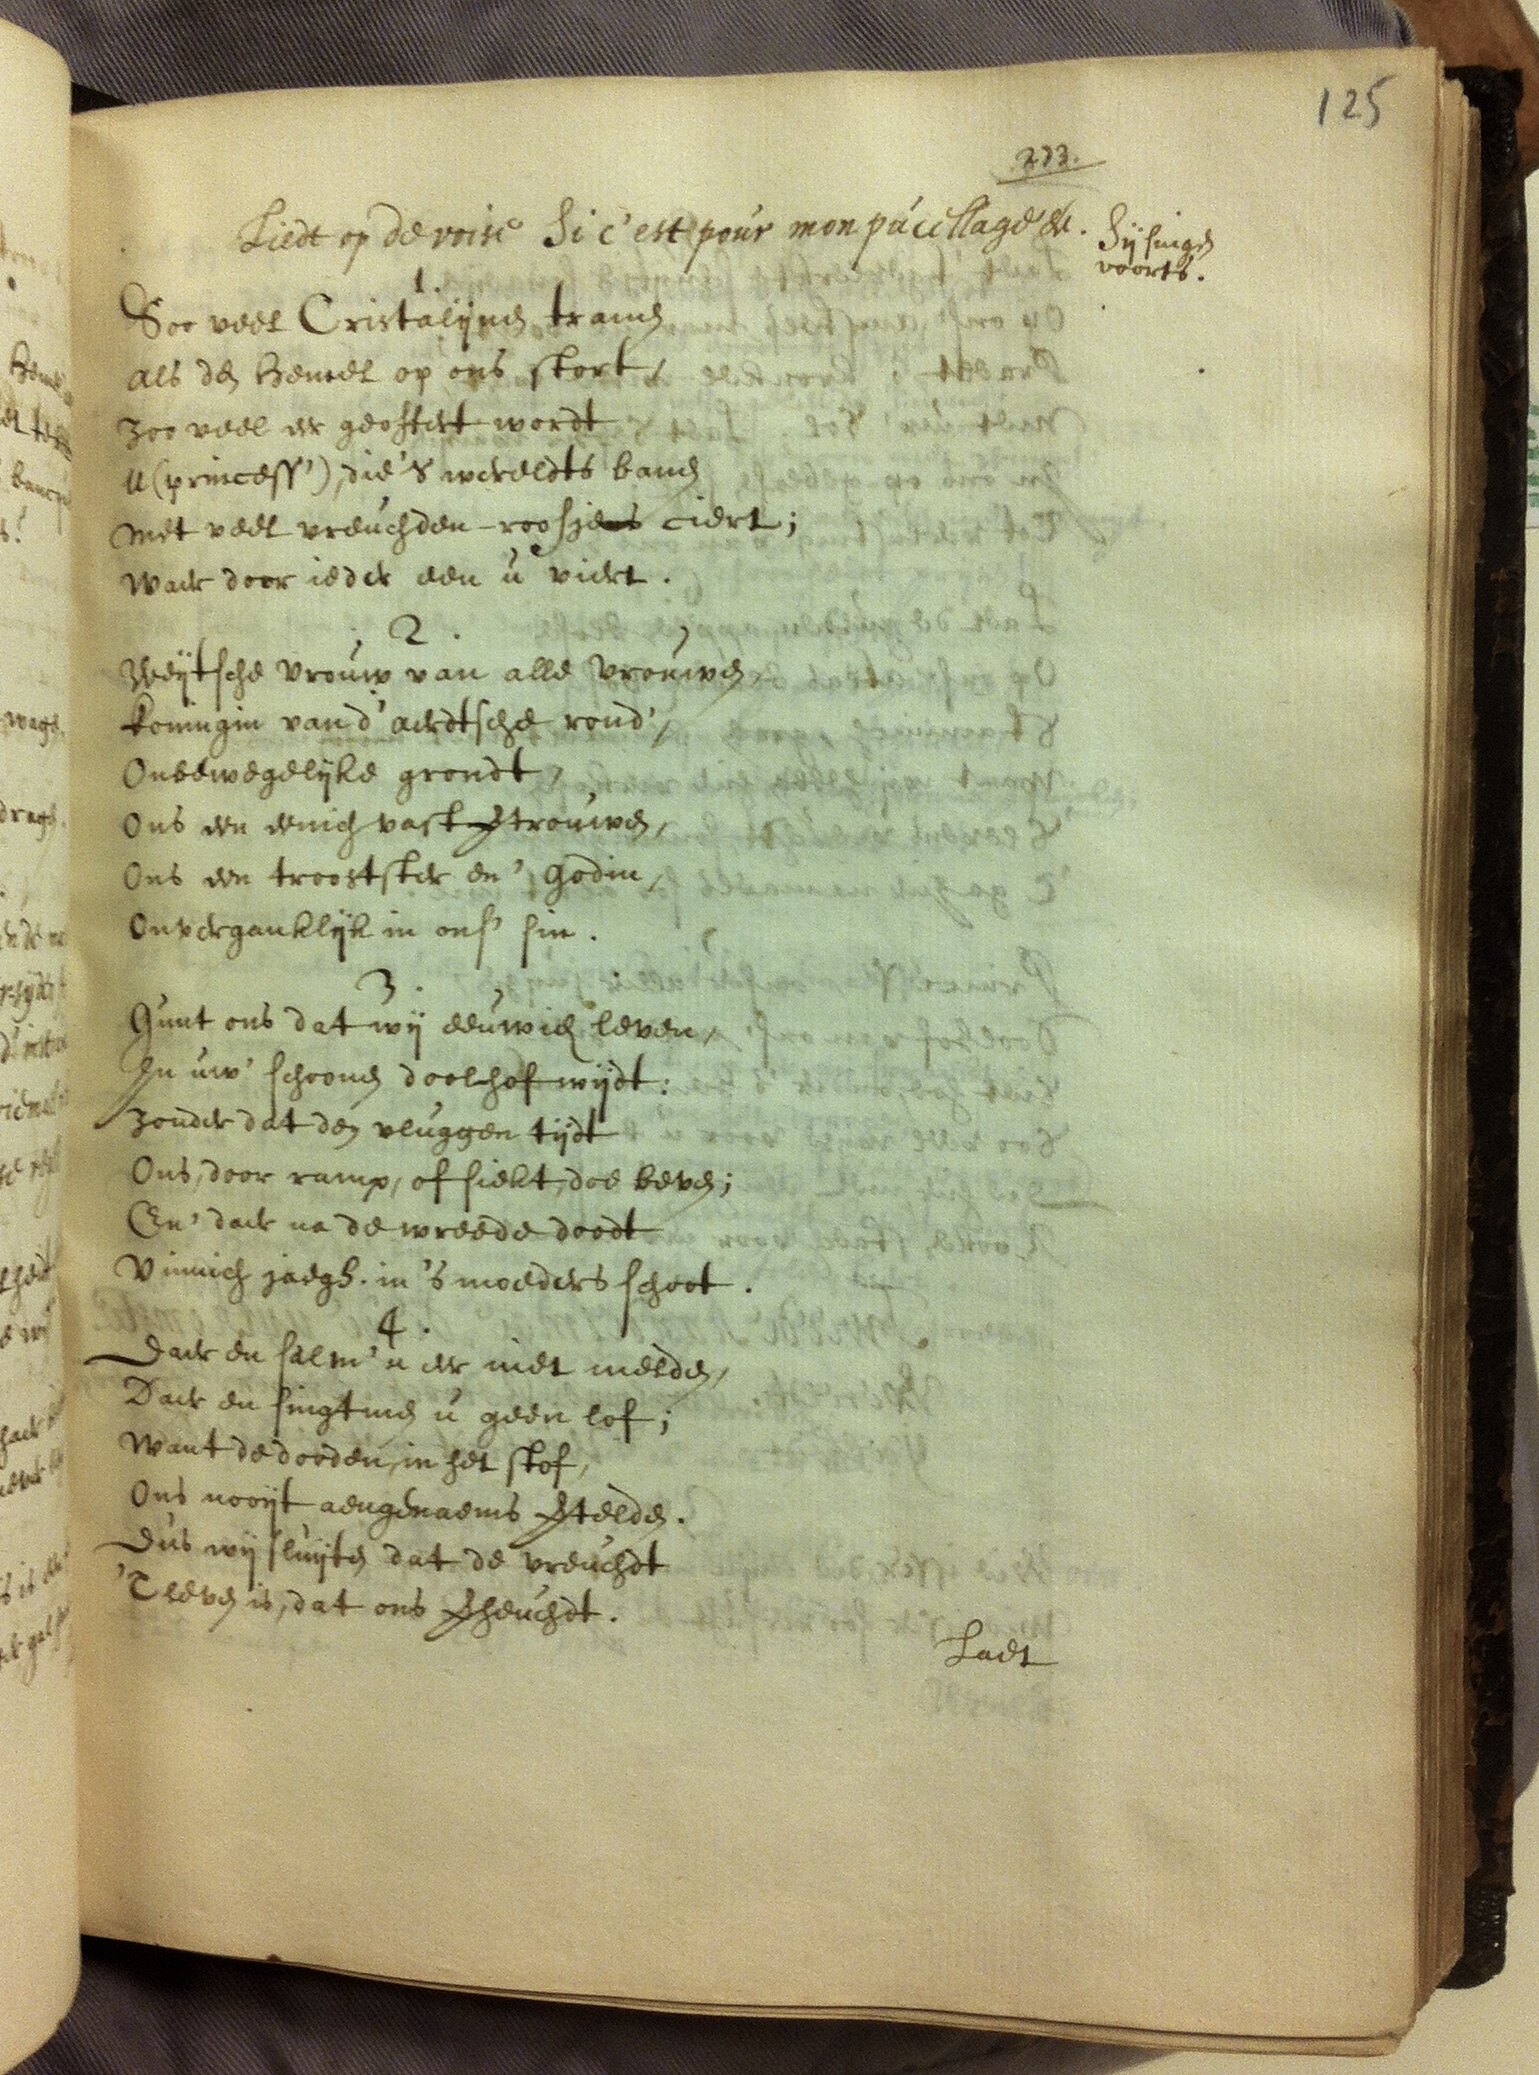 125
233.
Liedt op de voise Si c'est pour mon pucellage &c.
Sij singen
voorts.
1.
Soo veel Cristalijnen tranen
als den Hemel op ons stort,
Zoo veel er geoffert wordt
U (princess'), die 's werelts banen
met veel vreuchden-roosjes ciert;
Waer door ieder een u viert.
2.
Weijtsche vrouw van alle vrouwen,
Koningin van d' aerdtsche rond',
Onbewegelijke grondt,
Ons een eenich vast betrouwen,
Ons een troostster en' Godin,
Onverganklijk in ons' sin.
3.
Gunt ons dat wij eeuwich leven,
In uw' schoonen doolhof wijdt:
Zonder dat den vluggen tijdt
Ons, door ramp, of siekt, doe beven;
En' daer na de wreede doodt
Vinnich jaegh. in 's moeders schoot.
4.
Daer en salm' u eer niet melden,
Daer en singtmen u geen lof;
Want de dooden, in het stof,
Ons nooijt aengenaems bestelden.
Dus wij sluijten dat de vreuchdt
'T leven is, dat ons verheuchdt.
Laet